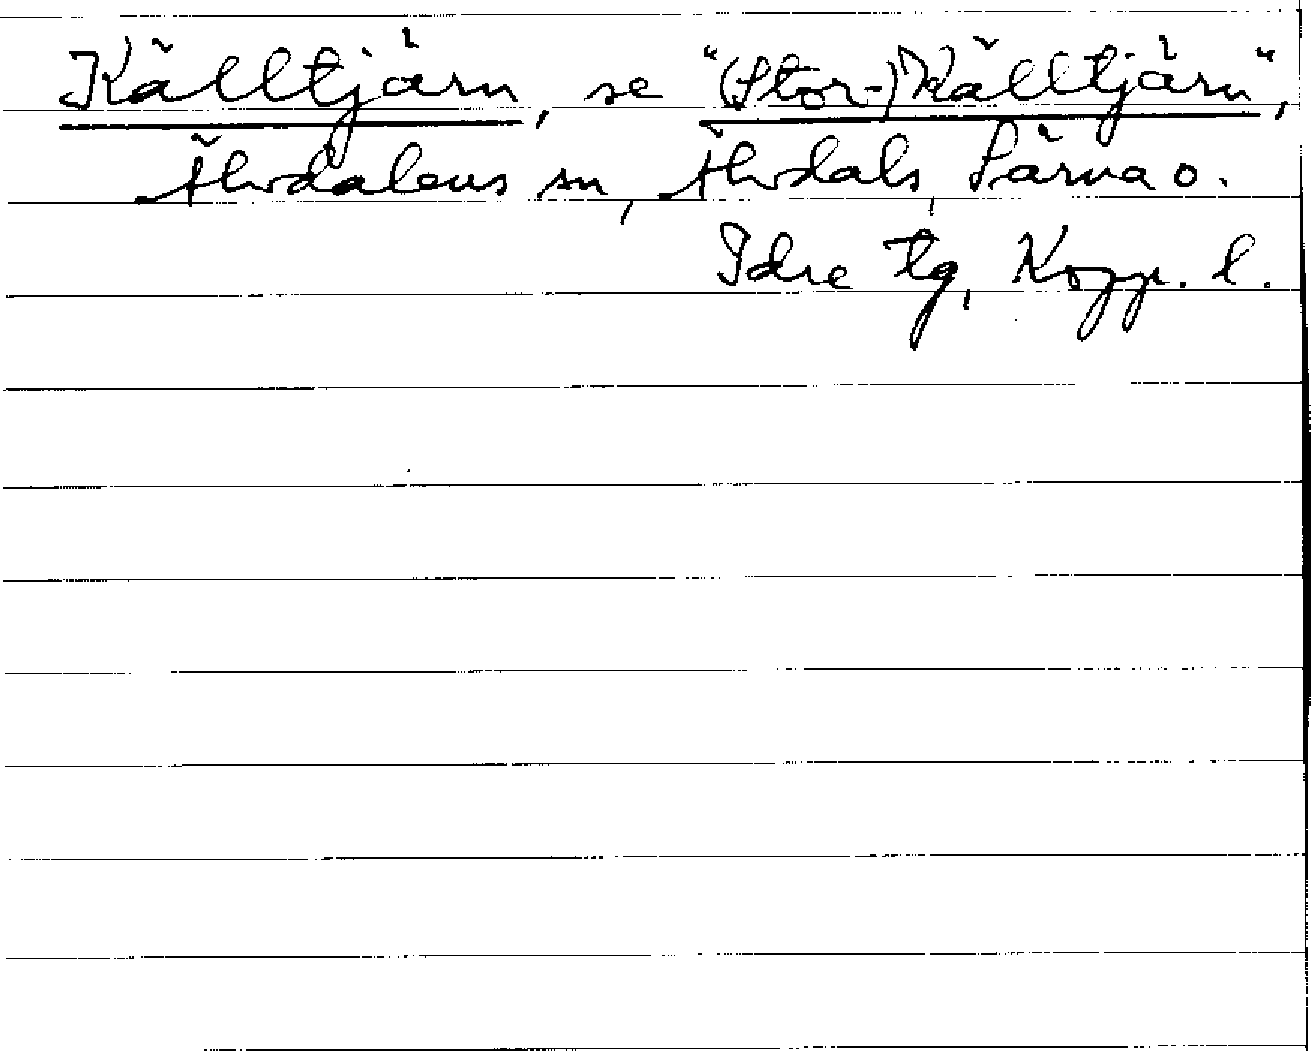 Källtjärn, se "(Stor-)Källtjärn",
Älvdalens sn, Älvdals, Särna o.
Idre tg, Kopp. l.